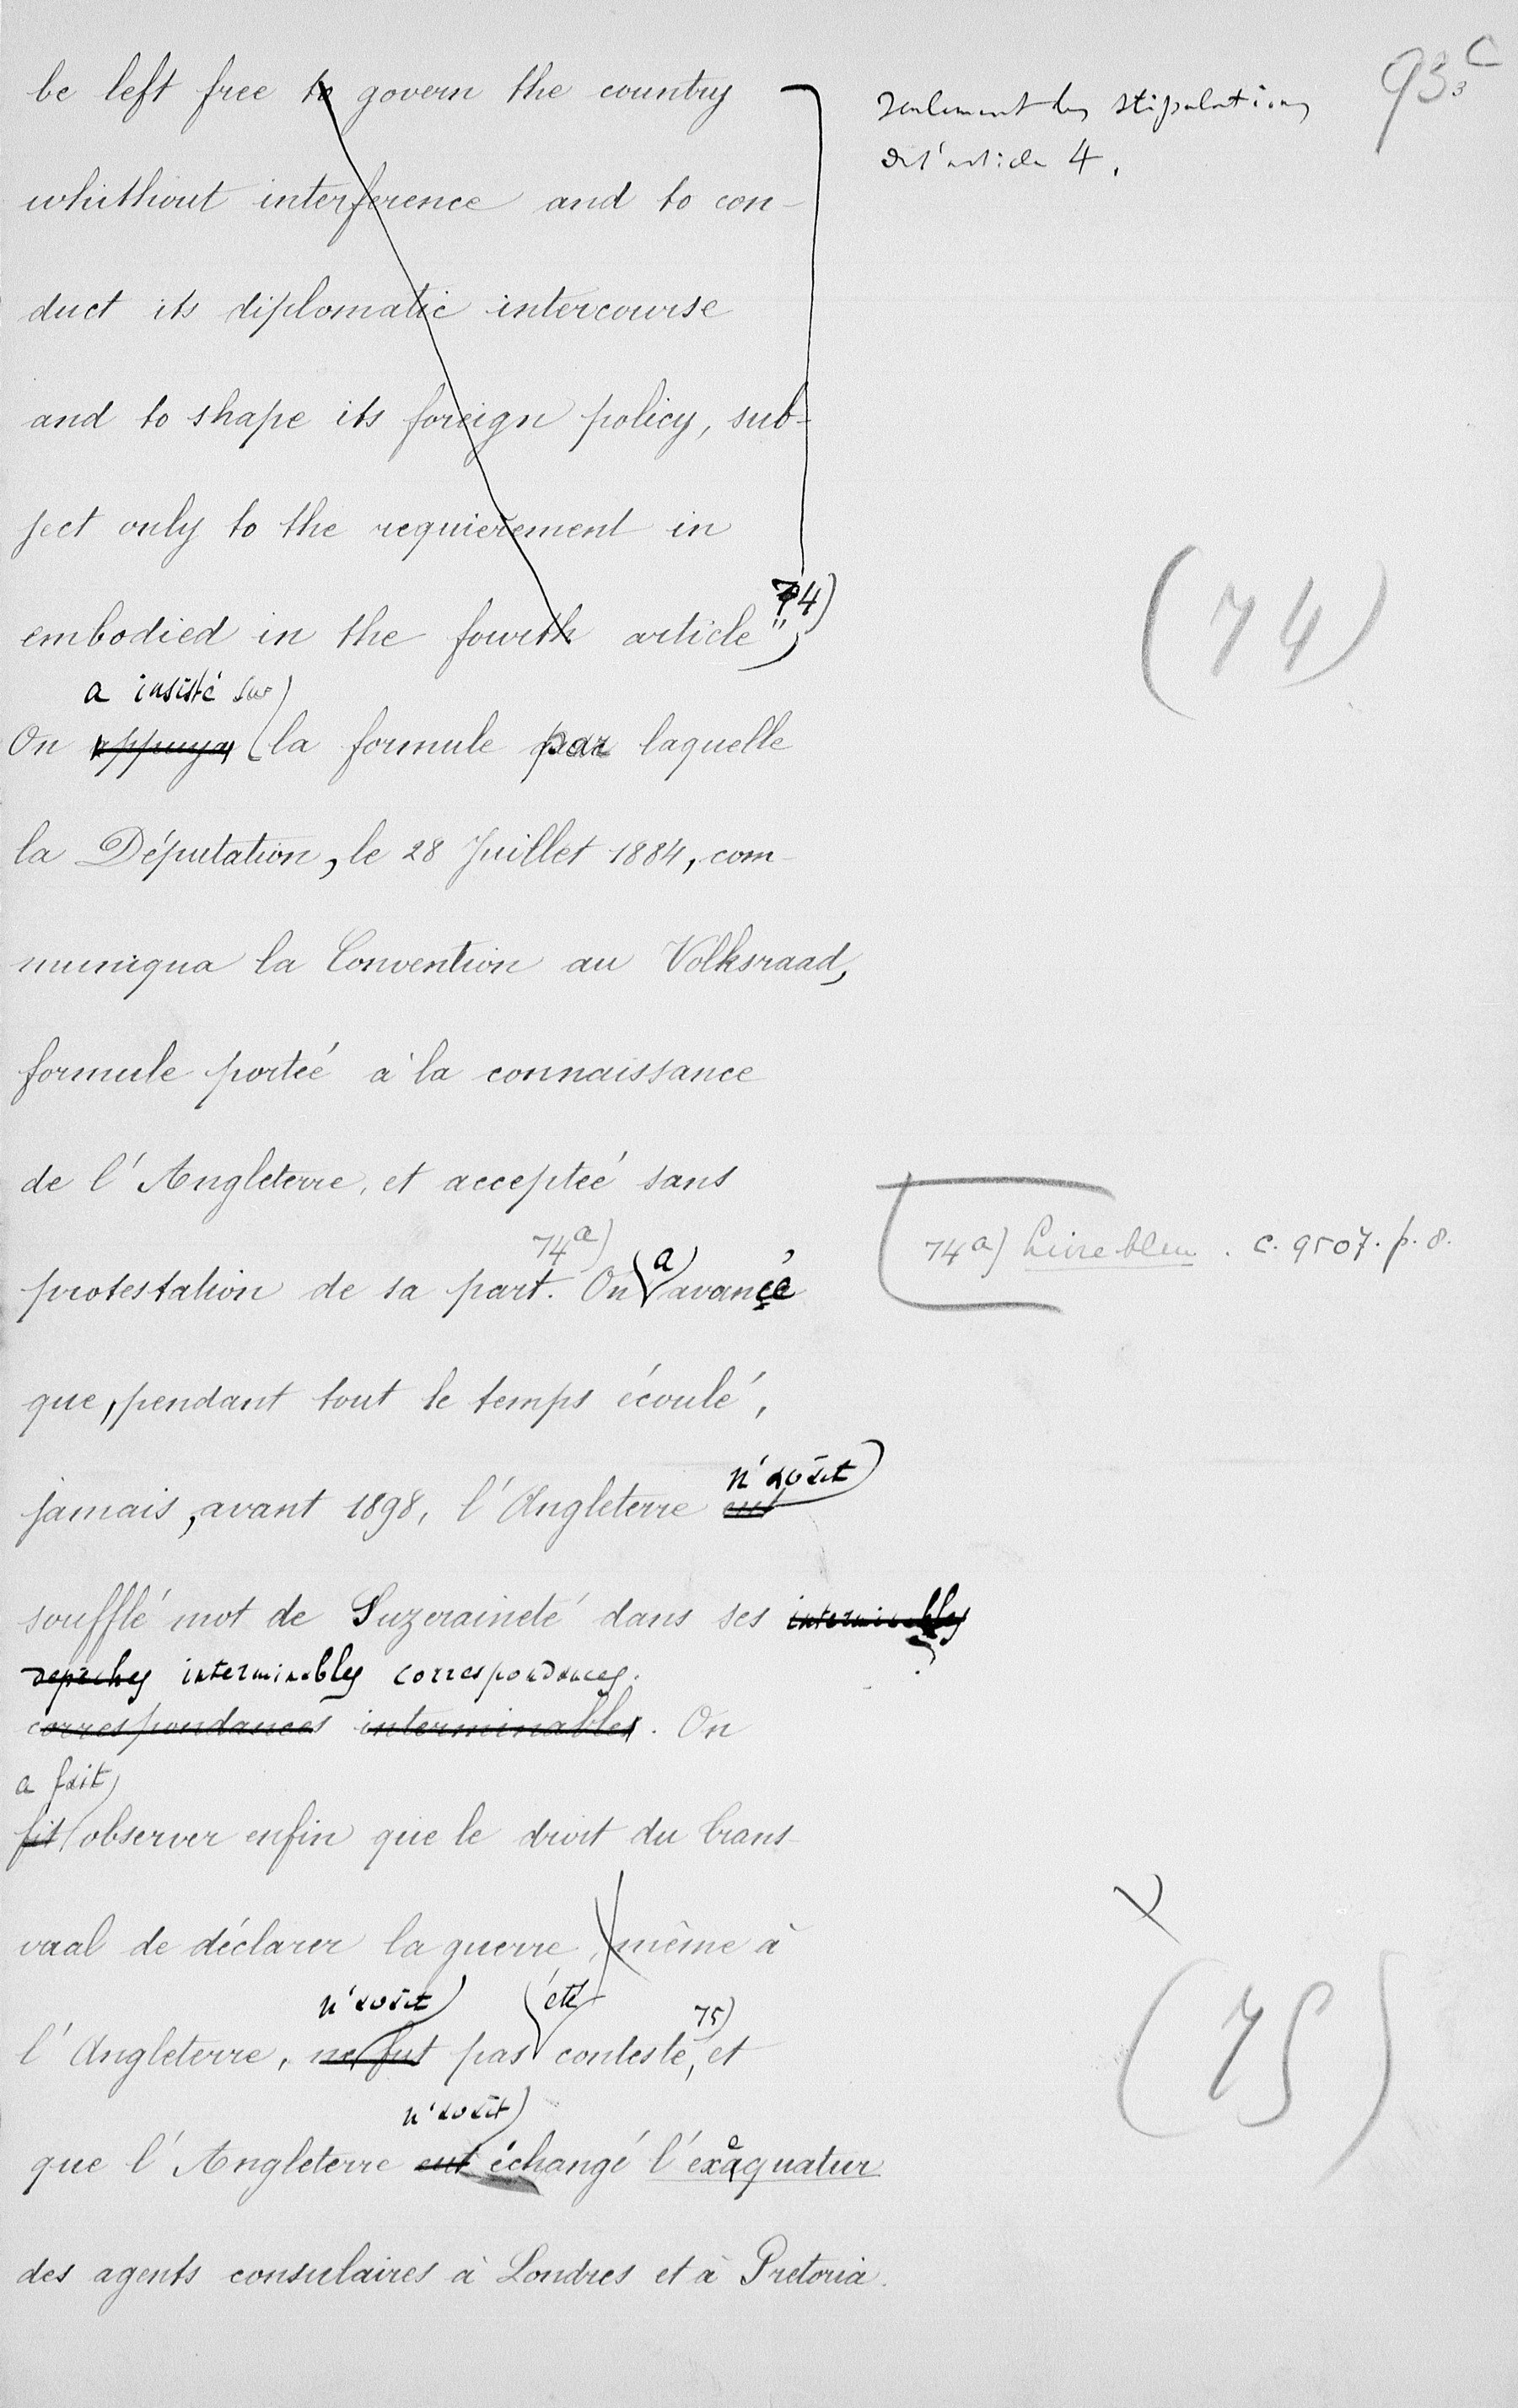 93c
be left free to govern the country
seulement les stipulations
de l'article 4.
whithout interference and to con-
duct its diplomatic intercourse
and to shape its foreign policy, sub-
ject only to the requierement in
embodied in the fourth article" 74)
(74)
a insisté sur
On appuya la formule par laquelle
la Députation, le 28 Juillet 1884, com-
muniqua la Convention au Volksraad,
formule portée à la connaissance
de l'Angleterre, et acceptée sans
74a)
protestation de sa part. On a avancé
74a) Livre bleu. c. 9507. p. 8.
que, pendant tout le temps écoulé,
n'avait
jamais, avant 1898, l'Angleterre eut
soufflé mot de Suzeraineté dans ses interminables
depêches interminables correspondances.
correspondances interminables. On
a fait
fit observer enfin que le droit du Trans-
vaal de déclarer la guerre, même à
n'avait été 75)
l'Angleterre, ne fut pas contesté, et
(75)
n'avait
que l'Angleterre eut échangé l'exequatur
des agents consulaires à Londres et à Pretoria.